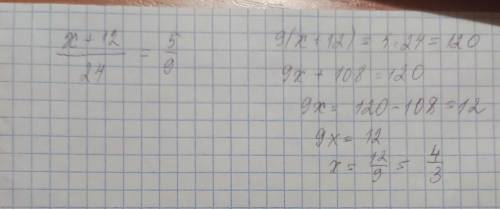 (x + 12)/24 = 5/9
9(x + 12) = 5 · 24 = 120
9x + 108 = 120
9x = 120 - 108 = 12
9x = 12
x = 12/9 = 4/3